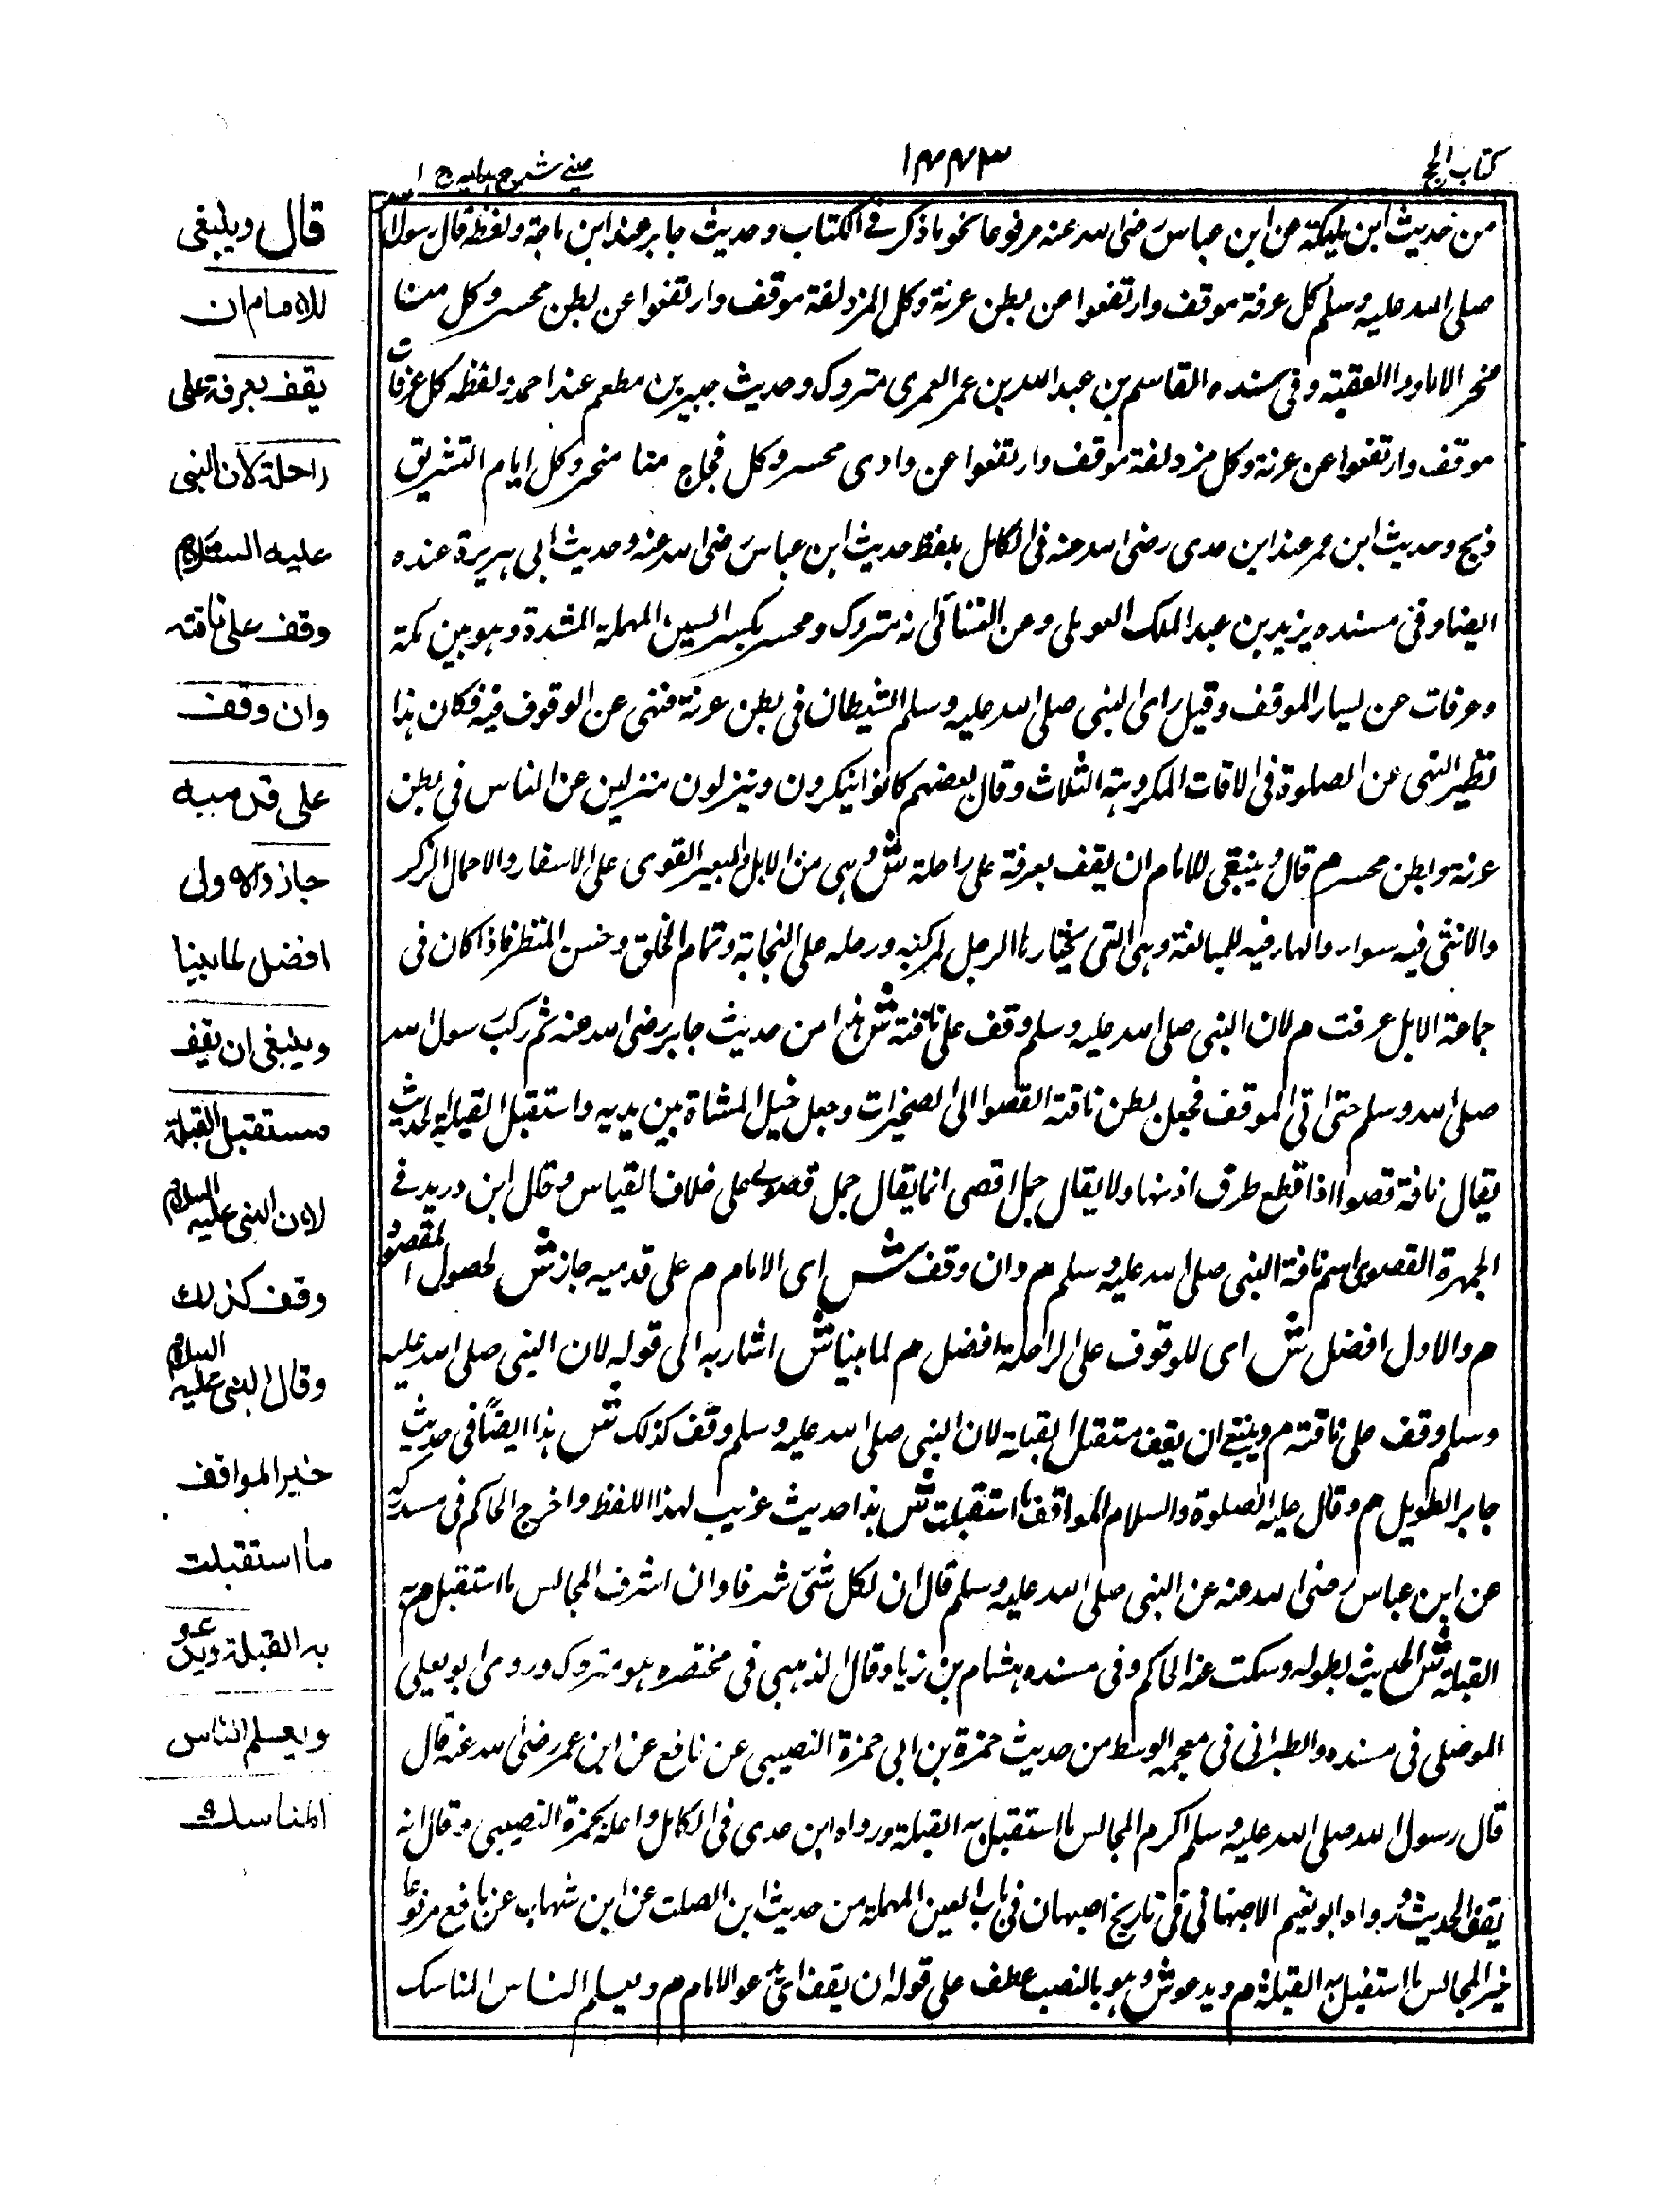 كتاب الحج
۱۴۴۳
عینے شرح ہدایہ ج ۱
من حديث ابن مليكة عن ابن عباس رضى الله عنه مرفوعا نحو ما ذكر فى الكتاب وحديث جابر عند ابن ماجة ولفظه قال رسول الله
صلى الله عليه وسلم كل عرفة موقف وارتفعوا عن بطن عرنة وكل المزدلفة موقف وارتفعوا عن بطن محسر وكل منا
منحر الا ما وراء العقبة وفى سنده القاسم بن عبد الله بن عمر العمرى متروك وحديث جبير بن مطعم عند احمد ولفظه كل عرفات
موقف وارتفعوا عن عرنة وكل مزدلفة موقف وارتفعوا عن وادى محسر وكل فجاج منا منحر وكل ايام التشريق
ذبح وحديث ابن عمر عند ابن عدى رضى الله عنه فى الكامل بلفظ حديث ابن عباس رضى الله عنه وحديث ابى هريرة عنده
ايضا وفى مسنده يزيد بن عبد الملك وعن النسائى انه متروك ومحسر بكسر السين المهملة المشددة وهو بين مكة
وعرفات عن يسار الموقف وقيل راى النبى صلى الله عليه وسلم الشيطان فى بطن عرنة فنهى عن الوقوف فيه فكان هذا
نظير النهى عن الصلوة فى الاقات المكروهة الثلاث وقال بعضهم كانوا ينكرون وينزلون منزلين عن الناس فى بطن
عرنة وبطن محسر م قال وينبغى للامام ان يقف بعرفة على راحلة ش وهى من الابل البعير القوى على الاسفار والاحمال الذكر
والانثى فيه سواء والهاء فيه للمبالغة وهى التى يختارها الرجل لمركبه ورحله على النجابة وتمام الخلق وحسن المنظر فاذا كان فى
جماعة الابل عرفت م لان النبى صلى الله عليه وسلم وقف على ناقته ش هذا من حديث جابر رضى الله عنه ثم ركب رسول الله
صلى الله وسلم حتى اتى الموقف فجعل بطن ناقته القصوا الى الصخرات وجعل حبل المشاة بين يديه واستقبل القبلة الحديث
يقال ناقة قصوا اذا قطع طرف اذنها ولا يقال جمل اقصى انما يقال جمل قصوى على خلاف القياس وقال ابن دريد فى
الجمهرة القصوى اسم ناقة النبى صلى الله عليه وسلم م وان وقف ش اى الامام م على قدميه جاز ش لحصول المقصود
م والاول افضل ش اى للوقوف على الراحلة افضل م لما بينا ش اشار به الى قوله لان النبى صلى الله عليه
وسلم وقف على ناقته م وينبغى ان يقف مستقبل القبلة لان النبى صلى الله عليه وسلم وقف كذلك ش هذا ايضاً فى حديث
جابر الطويل م وقال عليه الصلوة والسلام المواقف ما استقبلت ش هذا حديث غريب لهذا اللفظ واخرج الحاكم فى مستدركه
عن ابن عباس رضى الله عنه عن النبى صلى الله عليه وسلم قال ان لكل شئ شرفا وان اشرف المجالس ما استقبل م به
القبلة ش الحديث بطوله وسكت عنه الحاكم وفى مسنده هشام بن زياد وقال الذهبى فى مختصره هو متروك وروى ابو يعلى
الموصلى فى مسنده والطبرانى فى معجمه الوسط من حديث حمزة بن ابى حمزة النصيبى عن نافع عن ابن عمر رضى الله عنه قال
قال رسول الله صلى الله عليه وسلم اكرم المجالس ما استقبل به القبلة ورواه ابن عدى فى الكامل واعله بحمزة النصيبى وقال انه
يضع الحديث ورواه ابو نعيم الاصبهانى فى تاريخ اصبهان فى باب العين المهملة من حديث ابن الصلت عن ابن شهاب عن نافع مرفوعا
خير المجالس ما استقبل به القبلة م ويدعو ش وهو بالنصب عطف على قوله ان يقف اى يدعو الامام م ويعلم الناس المناسك
قال وينبغى
للامام ان
يقف بعرفة على
راحلة لان النبى
عليه السلام
وقف على ناقته
وان وقف
على قدميه
جاز والاول
افضل لما بينا
وينبغى ان يقف
مستقبل القبلة
لان النبى عليه السلام
وقف كذلك
وقال النبى عليه السلام
خير المواقف
ما استقبلت
به القبلة ويدعو
ويعلم الناس
المناسك